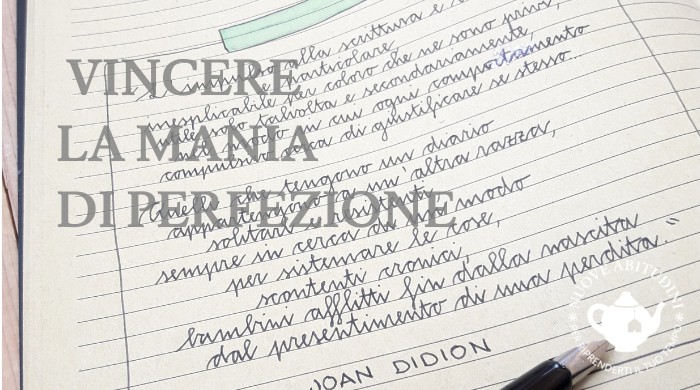 VINCERE
LA MANIA
DI PERFEZIONE
L'impulso alla scrittura è
particolare,
inesplicabile per coloro che ne sono privi,
utile solo talvolta e secondariamente,
nel modo in cui ogni comportamento
compulsivo cerca di giustificare se stesso..
Quelli che tengono un diario
appartengono a un'altra razza,
solitari e
sempre in cerca di un modo
per sistemare le cose,
scontenti cronici,
bambini afflitti fin dalla nascita
dal presentimento di una perdita."
JOAN DIDION
NUOVE ABITUDINI
RIPRENDERTI IL TUO